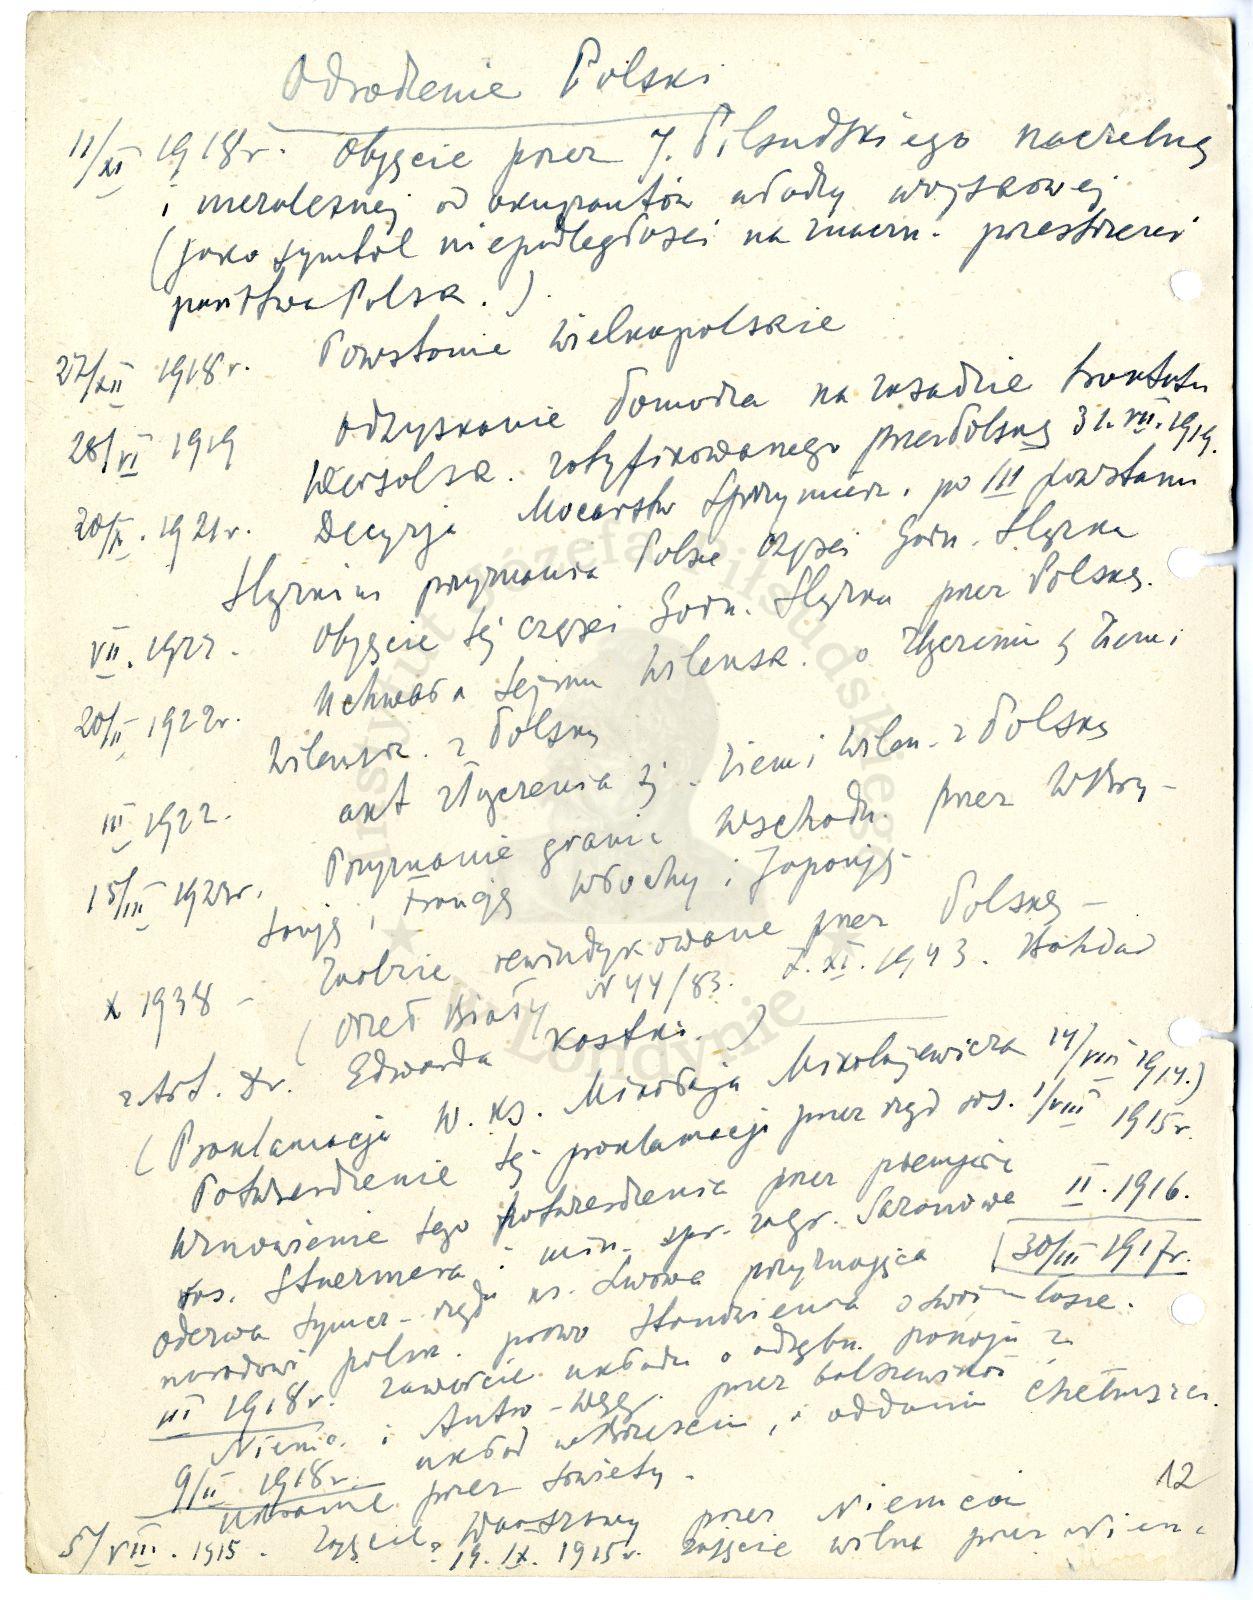 Odrodzenie Polski
11/XI 1918r. Objęcie przez J. Piłsudskiego naczelnej
i niezależnej od okupantów władzy wojskowej
(jako symbol niepodległości na znaczn. przestrzeni
państwa Polsk.)
27/XII 1918r. Powstanie Wielkopolskie
28/VI 1919 Odzyskanie Pomorza na zasadzie traktatu
Wersalsk. ratyfikowanego przez Polskę 31.VII.1919.
20/X. 1921r. Decyzja Mocarstw Sprzymierz. po III powstaniu
Śląskim przyznania Polsce części Górn. Śląska
VII. 1922. Objęcie tej części Górn. Śląska przez Polskę.
20/II 1922r. Uchwała Sejmu Wileńsk. o złączeniu tej Ziemi
Wileńsk. z Polską
III 1922. akt złączenia tej Ziemi Wileń. z Polską
15/III 1923r. Przyznanie granic wschodn. przez W. Bry-
tanję, Francję, Włochy i Japonję
X 1938 - Zaolzie rewindykowane przez Polskę -
(Orzeł Biały N 44/83. 7.XI.1943. Bohdan
z Art. Dr. Edwarda Kostki.)
(Proklamacja W. Ks. Mikołaja Mikołajewicza 14/VIII 1914.)
Potwierdzenie tej proklamacji przez rząd ros. 1/VIII 1915r.
Wznowienie tego potwierdzenia przez premjera
ros. Stuermera i min. spr. zagr. Sazonowa II. 1916.
Odezwa tymcz. rządu ks. Lwowa przyznająca 30/III 1917r.
narodowi polsk. prawo stanowienia o swoim losie.
III 1918r. zawarcie układu o odrębn. pokoju z
Niemc. i Austro-Węg. przez bolszewików
9/II 1918r. układ w Brześciu, o oddaniu Chełmszcz.
uznanie przez Sowiety.
12
5/VIII. 1915. Zajęcie Warszawy przez Niemców
19.IX. 1915r. zajęcie Wilna przez Niem.
Instytut Józefa Piłsudskiego
w Londynie